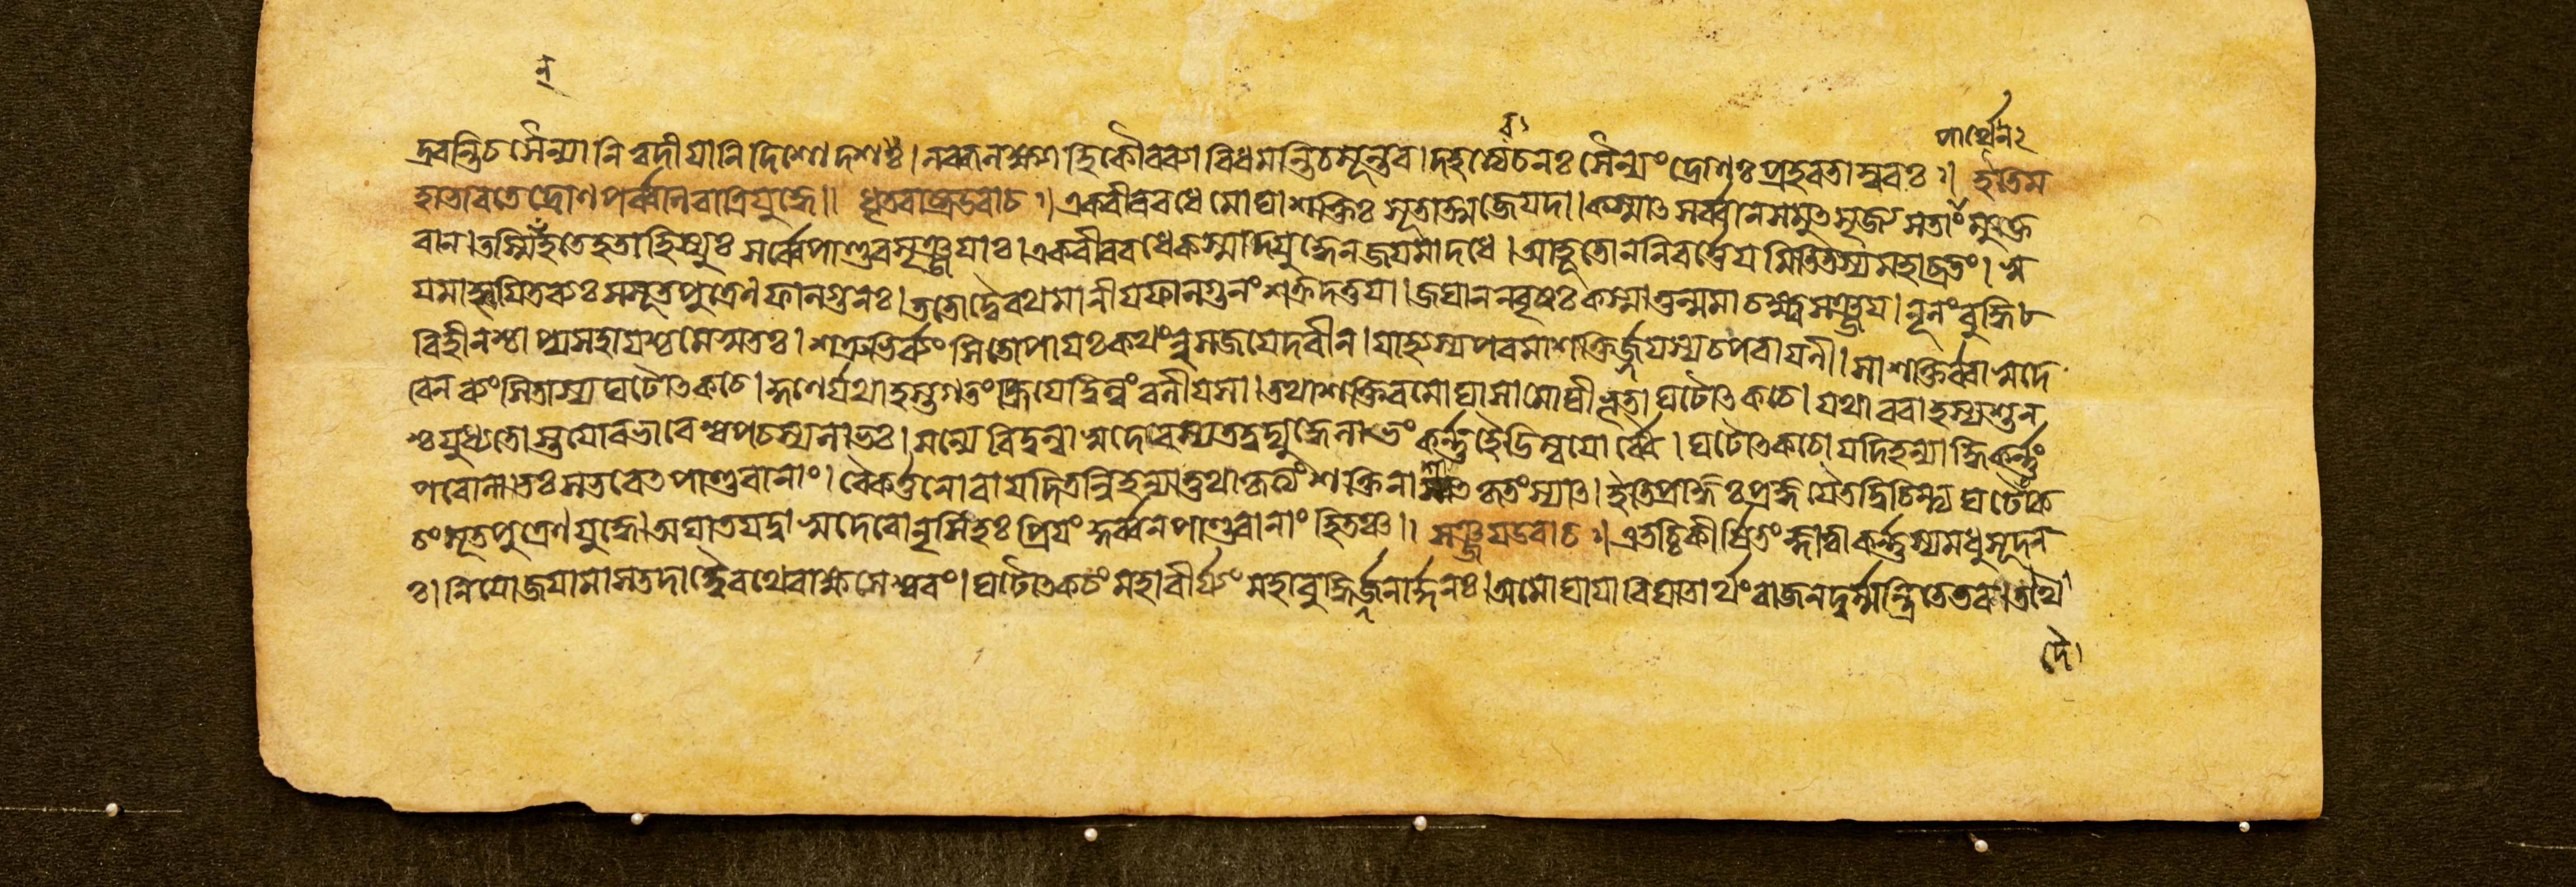 ন্
পার্থেন২
দ্রবন্তি চ সৈন্যানি ত্বদীয়ানি দিশো দশঃ। লব্ধলক্ষ্যা হি কৌরব্যা বিধমন্তি চমূন্তব। দহত্যেষ চ নঃ সৈন্যং দ্রোণঃ প্রহরতাম্বরঃ॥ ইতি ম
হাভারতে দ্রোণপর্ব্বণি রাত্রিযুদ্ধে॥ ধৃতরাষ্ট্র উবাচ॥ একবীরবধে মোঘা শক্তিঃ সূতাত্মজে যদা। কস্মাৎ সর্ব্বান্ সমুৎসৃজ্য স তাং মুক্ত
বান্। তস্মিন্ হতে হতা হি স্যুঃ সর্ব্বে পাণ্ডবসৃঞ্জয়াঃ। একবীরবধে কস্মাদ্যুদ্ধে ন জয়মাদধে। আহূতো ন নিবর্ত্তেয়মিতি তস্য মহাব্রতং। স্ব
যমাহ্বয়িতব্যঃ স সূতপুত্রেণ ফাল্গুনঃ। ততো দ্বৈরথমানীয় ফাল্গুনং শক্রদত্তয়া। জঘান ন বৃষঃ কস্মাত্তন্মমাচক্ষ্ব সঞ্জয়। নূনং বুদ্ধি
বিহীনশ্চাপ্যসহায়শ্চ মে সুতঃ। শত্রুভির্ব্যংসিতোপায়ঃ কথং নু স জয়েদরীন্। যা হ্যস্য পরমা শক্তির্জ্জয়স্য চ পরায়ণী। সা শক্তির্ব্বাসুদে
বেন ব্যংসিতাস্য ঘটোৎকচে। কুণের্যথা হস্তগতং হ্রিয়েদ্বিল্বং বলীয়সা। তথা শক্তিরমোঘা সা মোঘীভূতা ঘটোৎকচে। যথা বরাহস্য শুন
শ্চ যুধ্যতোস্তয়োরভাবে শ্বপচস্য লাভঃ। মন্যে বিদ্বন্বাসুদেবস্য তদ্বদ্যুদ্ধে লাভং কর্ণ্ণহৈডিম্বয়োর্ব্বৈ। ঘটোৎকচো যদি হন্যাদ্ধি কর্ণ্ণং
পরো লাভঃ স ভবেৎ পাণ্ডবানাং। বৈকর্ত্তনো বা যদি তন্নিহন্যাত্তথা কৃত্যং শক্তিনাশাৎ কৃতং স্যাৎ। ইতি প্রাজ্ঞঃ প্রজ্ঞয়ৈতদ্বিচিন্ত্য ঘটোৎক
চং সূতপুত্রেণ যুদ্ধে। অঘাতয়দ্বাসুদেবো নৃসিংহঃ প্রিয়ং কুর্ব্বন্ পাণ্ডবানাং হিতঞ্চ॥ সঞ্জয় উবাচ॥ এতচ্চিকীর্ষিতং জ্ঞাত্বা কর্ণ্ণস্য মধুসূদন
ঃ। নিয়োজয়ামাস তদা দ্বৈরথে রাক্ষসেশ্বরং। ঘটোৎকচং মহাবীর্য্যং মহাবুদ্ধির্জ্জনার্দ্দনঃ। অমোঘায়া বিঘাতার্থং রাজন্ দুর্ম্মন্ত্রিতে তব। তথৈ
দৈ।